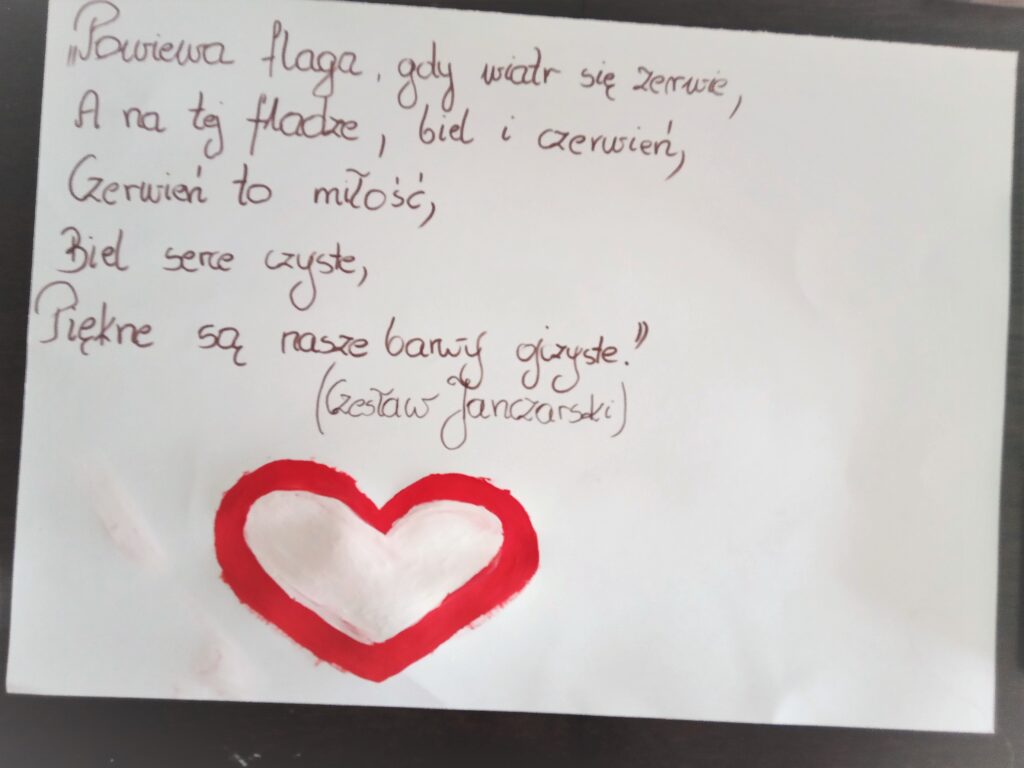 „Powiewa flaga, gdy wiatr się zerwie,
A na tej fladze, biel i czerwień,
Czerwień to miłość,
Biel serce czyste,
Piękne są nasze barwy ojczyste.”
(Czesław Janczarski)